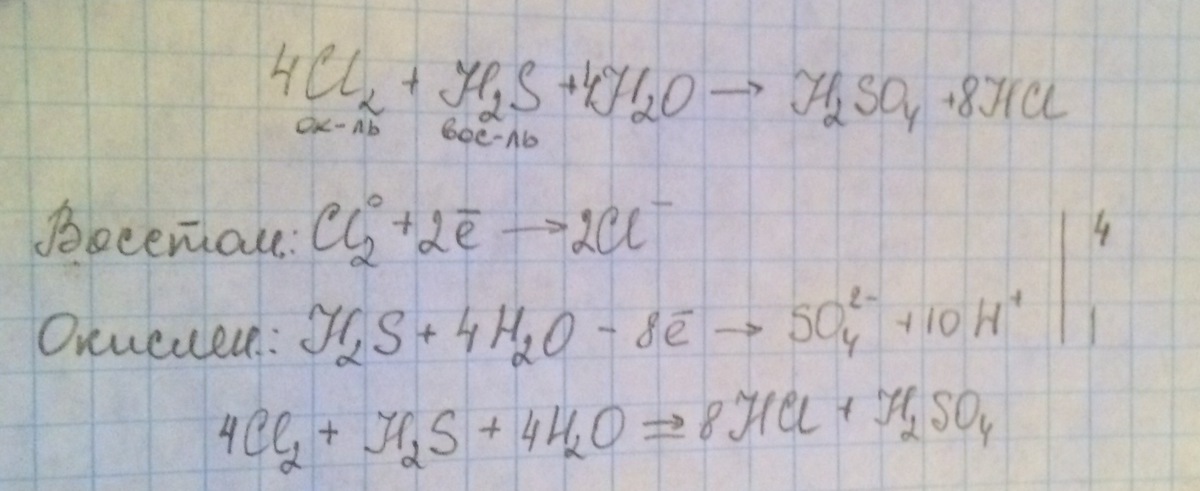 4Cl₂ + H₂S + 4H₂O → H₂SO₄ + 8HCl
ок-ль вос-ль
Восстан.: Cl₂⁰ + 2ē → 2Cl⁻ | 4
Окислен.: H₂S + 4H₂O - 8ē → SO₄²⁻ + 10H⁺ | 1
4Cl₂ + H₂S + 4H₂O ⇒ 8HCl + H₂SO₄